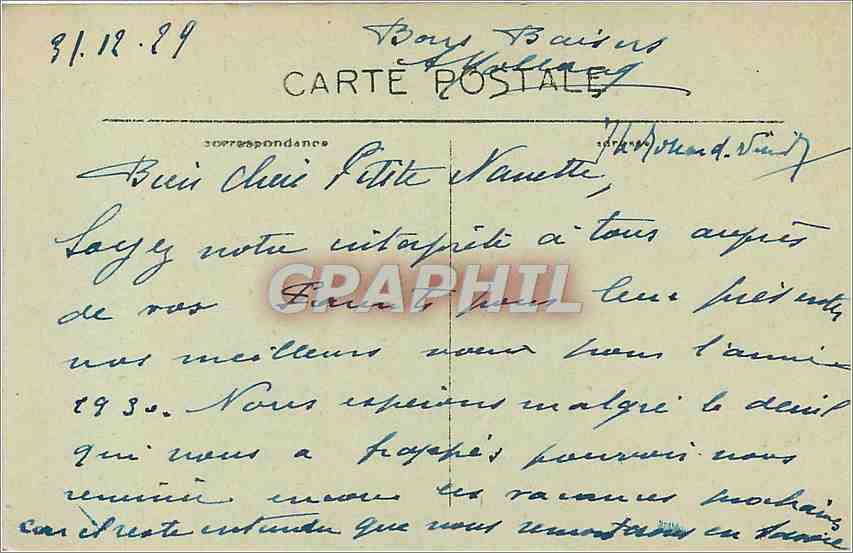 31.12.29
Bons Baisers
CARTE POSTALE
correspondance
Bien Chère Petite Nanette,
Soyez notre interprète à tous auprès
de vos Parents pour leur présenter
nos meilleurs voeux pour l'année
1930. Nous espérons malgré le deuil
qui nous a frappés pouvoir nous
réunir encore les vacances prochaines
car il reste entendu que nous remontons en Savoie
CPAPHIL